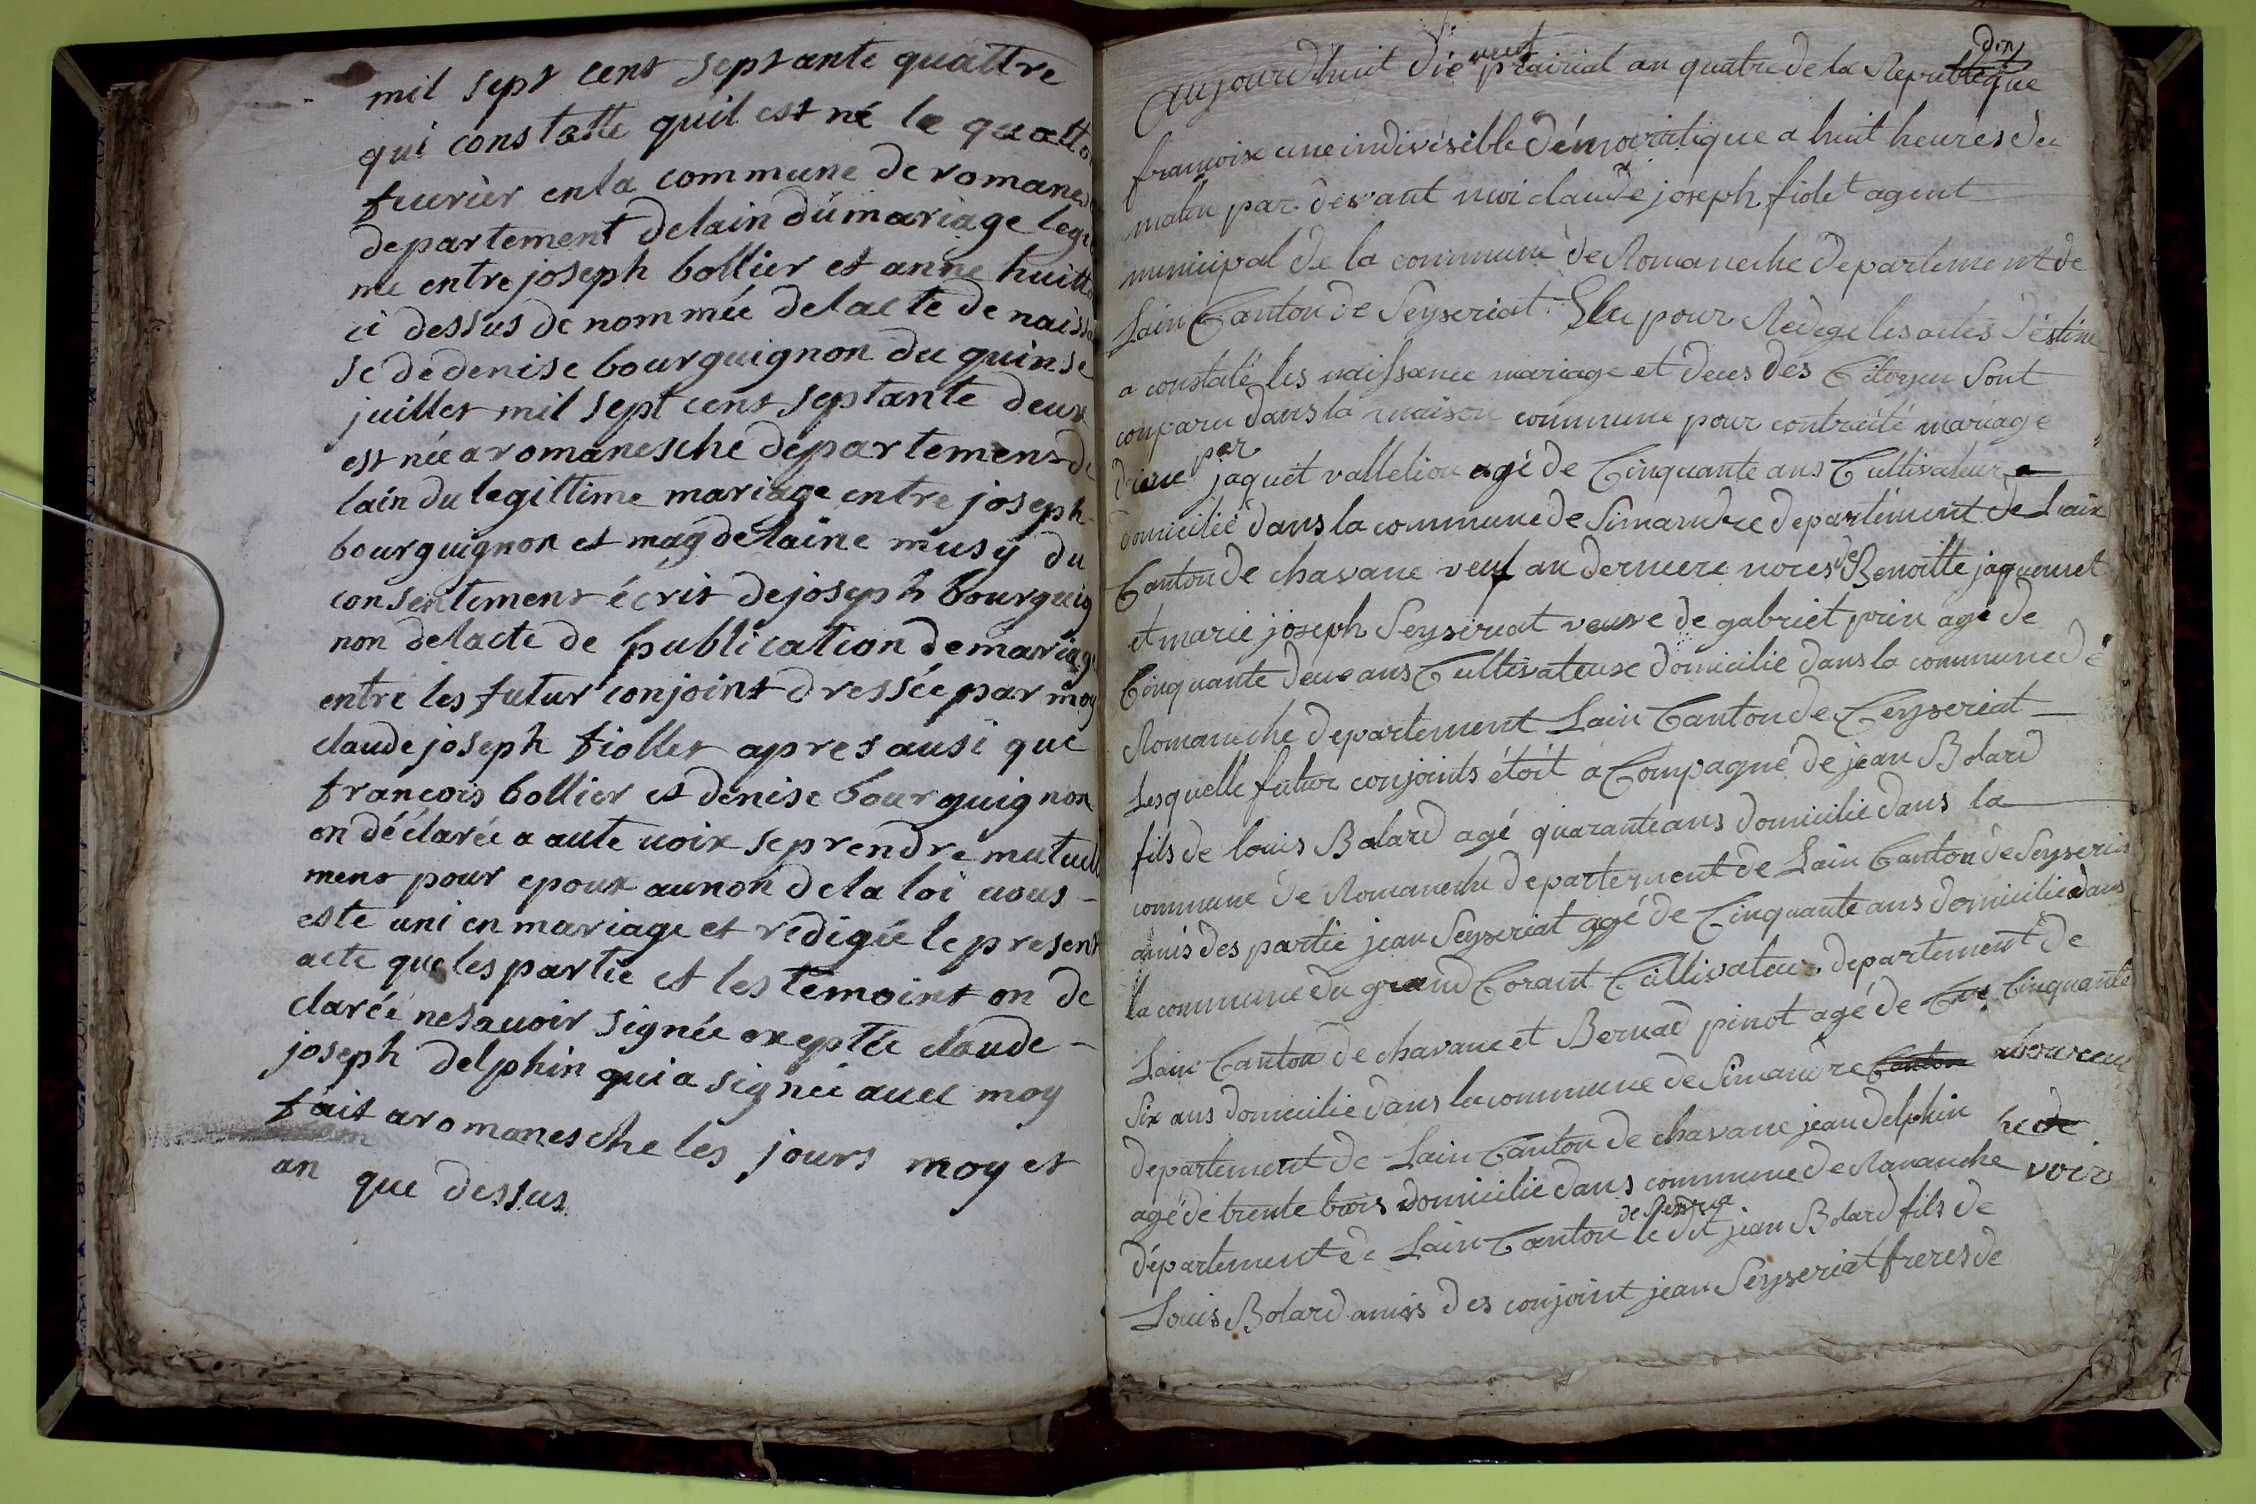 mil sept cent septante quattre
qui constatte quil est né le quatto
feuriér en la commune de romanes
departement delain du mariage legi
me entre joseph bollier et anne huitt
ci dessus denommée delacte de naissa
se dedenise bourguignon du quinse
juillet mil sept cent septante deux
est née a romanesche departement de
lain du legittime mariage entre joseph
bourguignon et magdelaine musy du
consentement écrit dejoseph bourguig
non delacte de publication demariage
entre les futur conjoint dressée par moy
claude joseph fiollet apres ausi que
francois bollier et denise bourguignon
on déclarée a aute uoix se prendre mutuell
ment pour epoux aunon dela loi uous
este uni en mariage et redigée le present
acte que les partie et les temoint on de
clarée nesauoir signée exeptée claude
joseph delphin qui a signée auec moy
fait a romanesche les jours moy et
an que dessus
aujourdhuit dix neuf prairial an quatre de la Republique
francoise une indivisible démocratique a huit heures du
matin par devant moi claude joseph fiolet agent
municipal de la commune de Romaneche departement de
Lain Canton de Seyseriat. Elu pour Redege les actes déstine
a constaté les naissance mariage et deces des Citoyen sont
comparu dans la maison commune pour contracté mariage
par jaquet vallelion agé de Cinquante ans Cultivateur
domicilié dans la commune de Simandre departément de Lain
Canton de chavane veuf an derniere noces de Benoitte jaquemet
et marie joseph Seyseriat veuve de gabriet prin agé de
Cinquante deux ans Cultivateuse domicilie dans la commune de
Romaneche departement Lain Canton de Ceyseriat
Lesquelle futur conjoints étoit a Compagné de jean Bolard
fils de louis Balard agé quarante ans domicilie dans la
commune de Romaneche departement de Lain Canton de Seyseria
amis des partie jean Seyseriat agé de Cinquante ans domicilie dans
la commune du grand Corant Cultivateur departement de
Lain Canton de chavane et Bernad pinot agé de Cinquante
Six ans domicilie dans la commune de Simandre Canton
departement de Lain Canton de chavane jean delphin
agé de trente trois domicilie dans commune de Ravanche voir
département de Lain Canton le dit jean Bolard fils de
Louis Bolard amis des conjoint jean Seyseriat freres de